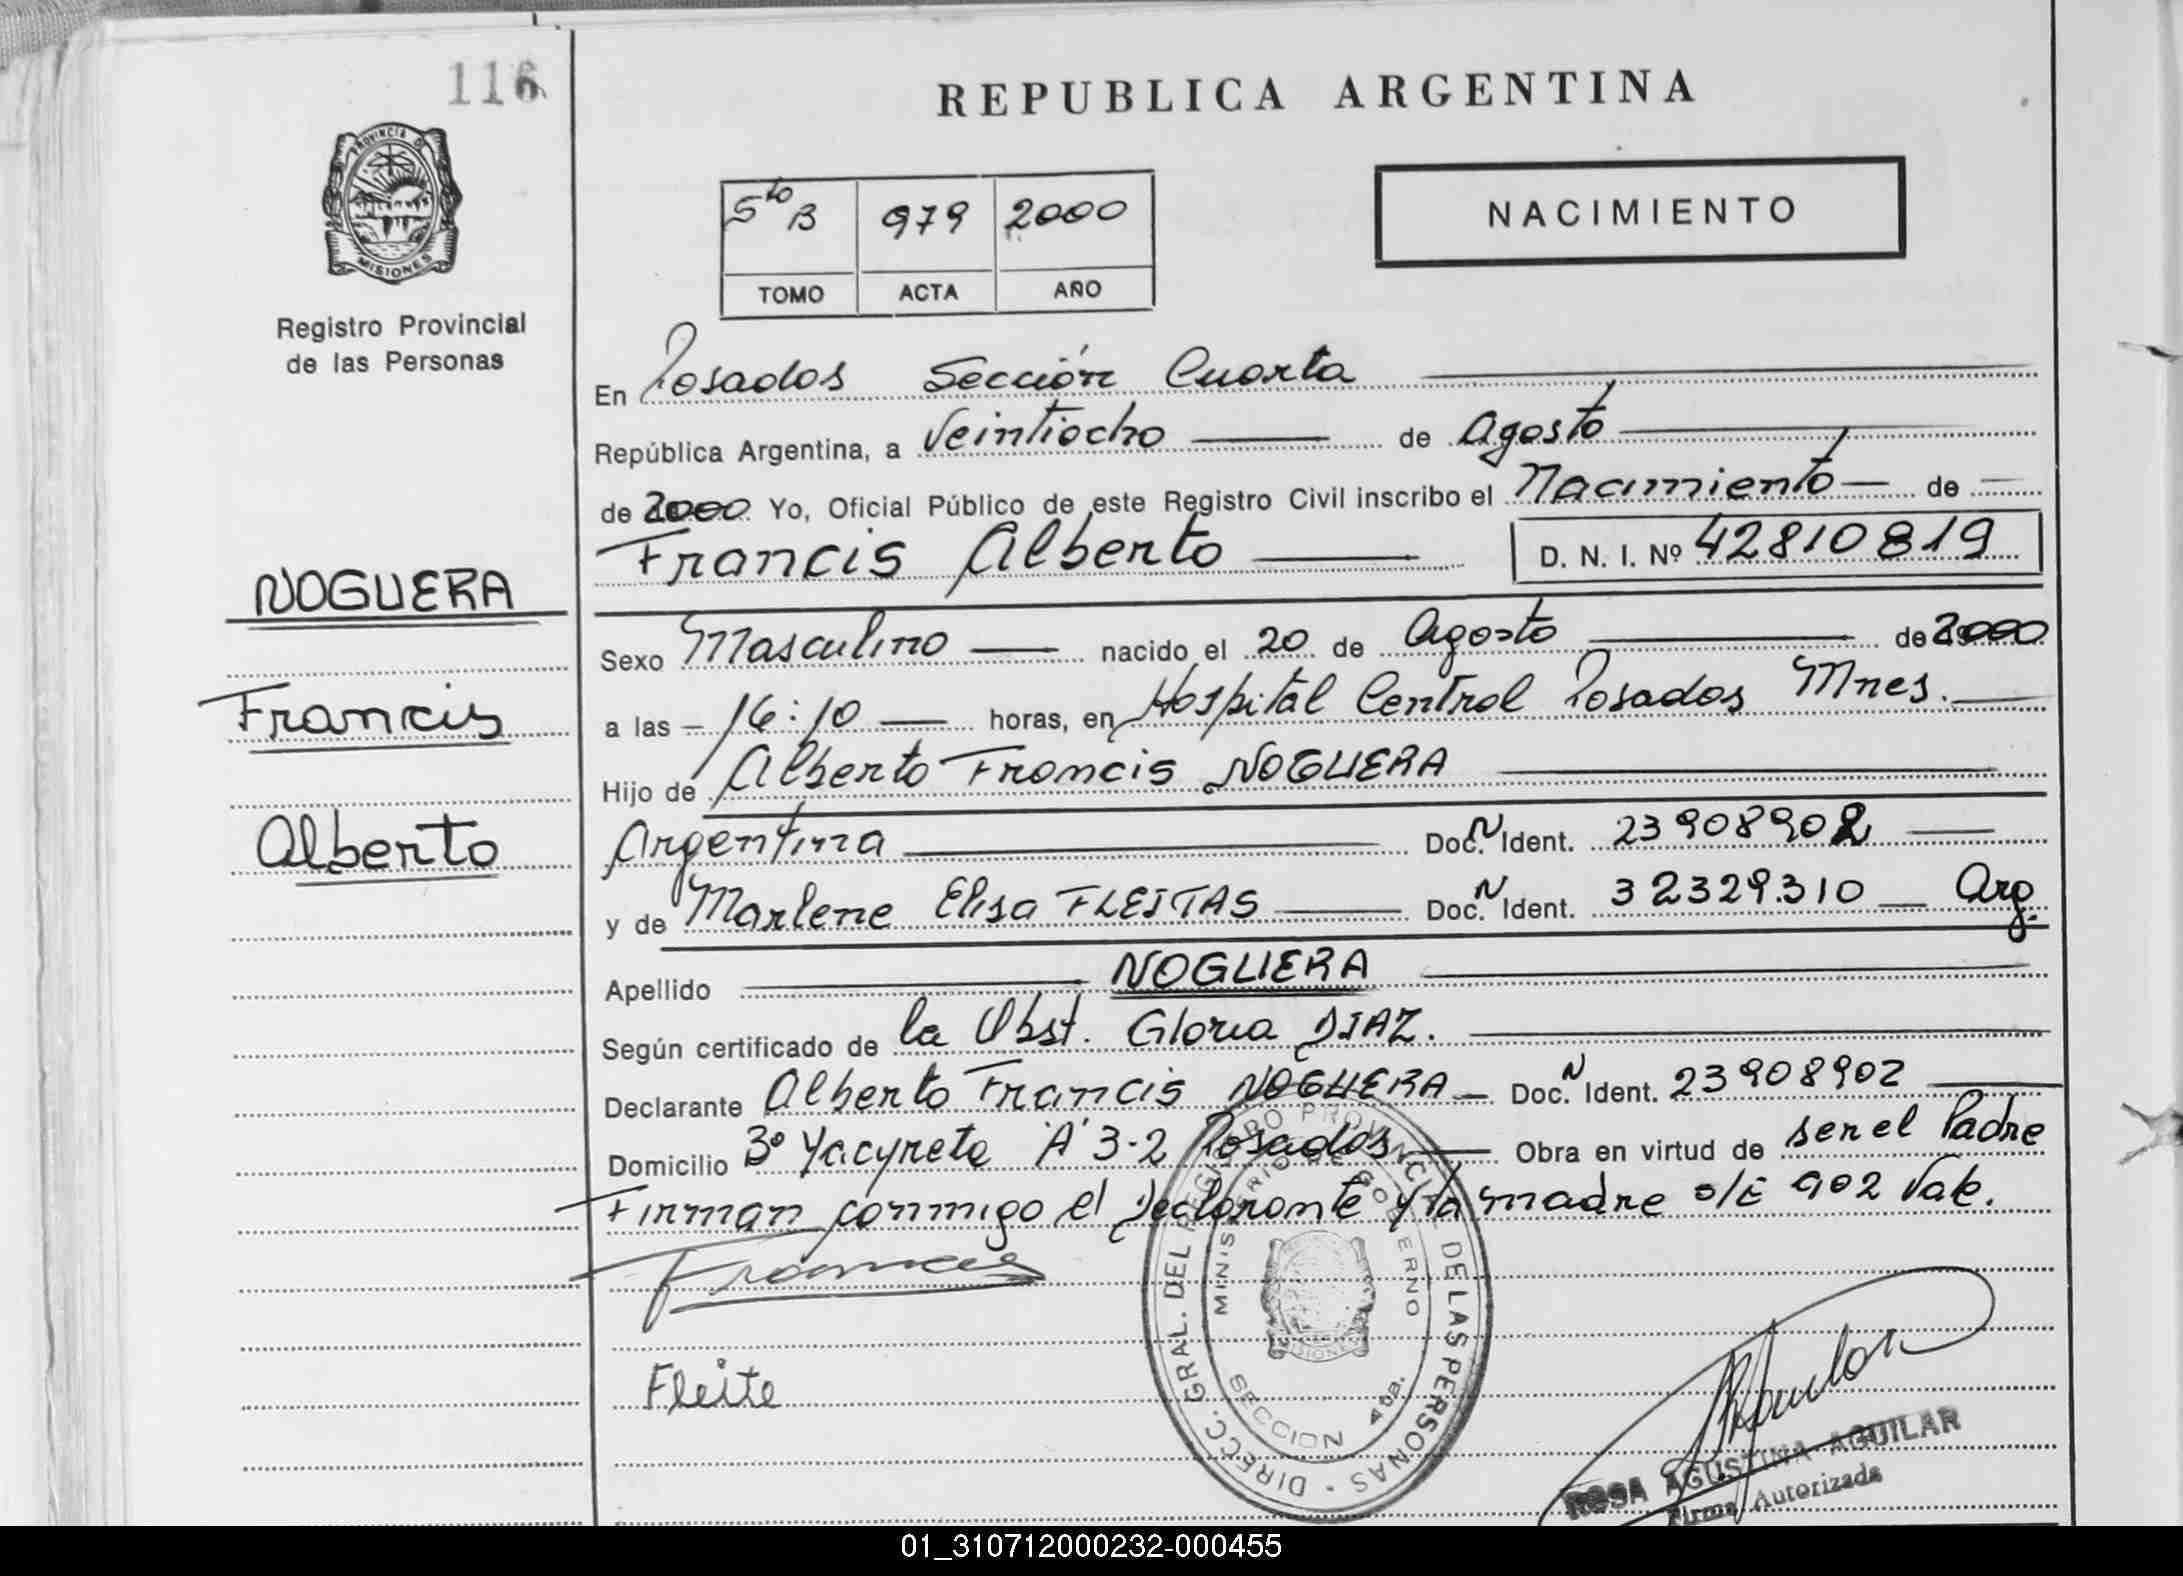 116
PROVINCIA DE
MISIONES
Registro Provincial
de las Personas
NOGUERA
Francis
Alberto
REPUBLICA ARGENTINA
5to B 979 2000
TOMO ACTA AÑO
NACIMIENTO
En Posadas Sección Cuarta
República Argentina, a Veintiocho de Agosto
de 2000 Yo, Oficial Público de este Registro Civil inscribo el Nacimiento de
Francis Alberto D. N. I. Nº 42810819
Sexo Masculino nacido el 20 de Agosto de 2000
a las 16:10 horas, en Hospital Central Posadas Mnes.
Hijo de Alberto Francis NOGUERA
Argentina Doc. N Ident. 23908902
y de Marlene Elisa FLEITAS Doc. N Ident. 32329.310 Arg.
Apellido NOGUERA
Según certificado de la Obst. Gloria DIAZ.
Declarante Alberto Francis NOGUERA Doc. N Ident. 23908902
Domicilio 3º Yacyreta "A" 3-2 Posadas Obra en virtud de ser el Padre
Firman conmigo el declarante y la madre s/E 902 Vale.
Francis
Fleite
DIRECC. GRAL. DEL REGISTRO PROVINCIAL DE LAS PERSONAS
MINISTERIO DE GOBIERNO
MISIONES
SECCION 4ta.
ROSA AGUSTINA AGUILAR
Firma Autorizada
01_310712000232-000455